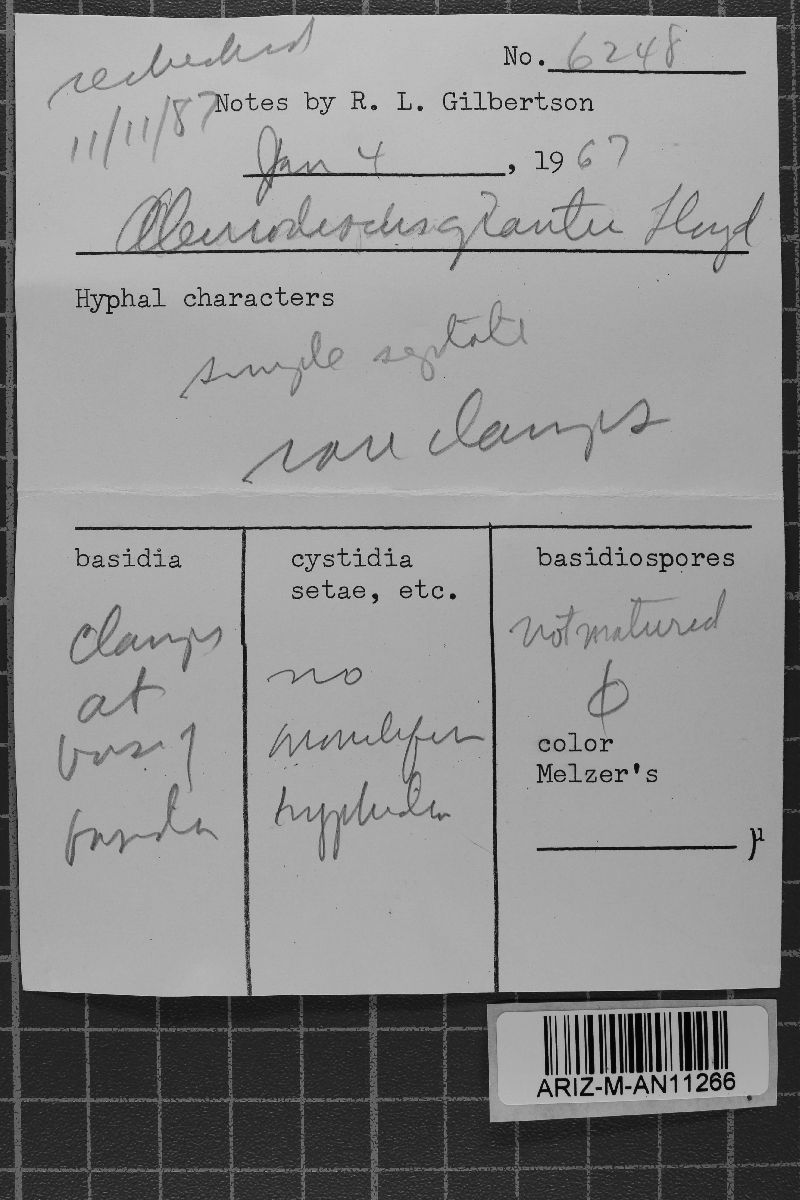 rechecked
11/11/87
No. 6248
Notes by R. L. Gilbertson
Jan 4, 1967
Aleurodiscus grantii Lloyd
Hyphal characters
simple septate
rare clamps
basidia
clamps
at
base of
basidia
cystidia
setae, etc.
no
moniliform
hyphidia
basidiospores
not matured
color
Melzer's
µ
ARIZ-M-AN11266